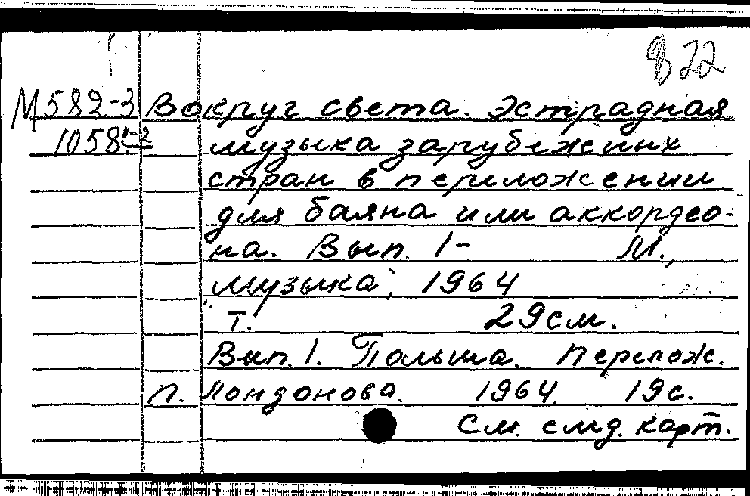 822
М582-3 Вокруг света. Эстрадная
1058 музыка зарубежных
стран в переложении
для баяна или аккордео-
на. Вып. 1- М.,
Музыка, 1964
т. 29см.
Вып. 1. Польша. Перелож.
П. Лондонова. 1964. 19с.
См. след. карт.